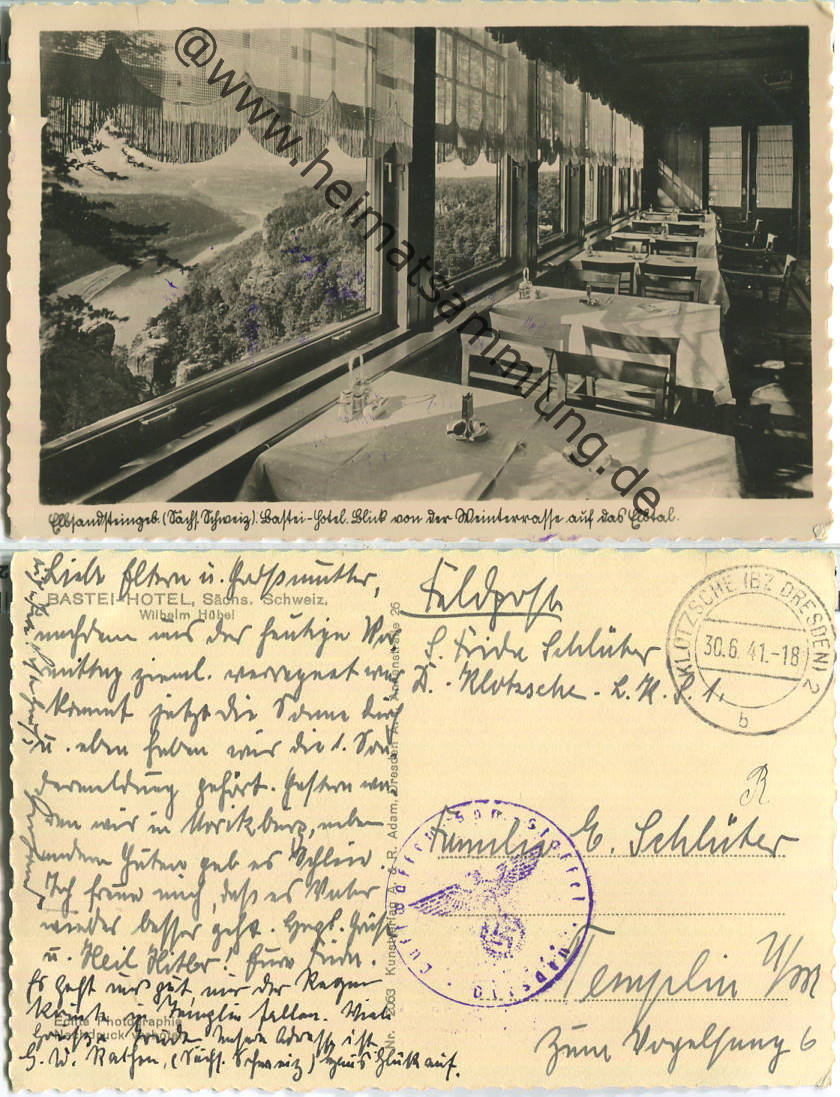 @www.heimatsammlung.de
Elbsandsteingeb. (Sächs. Schweiz). Bastei-Hotel. Blick von der Weinterrasse auf das Elbtal.
BASTEI-HOTEL, Sächs. Schweiz.
Wilhelm Hübel
Liebe Eltern u. Großmutter,
nachdem uns der heutige Vor
mittag zieml. verregnet war
kommt jetzt die Sonne durch
u. eben haben wir die 1. Son
dermeldung gehört. Gestern wa
ren wir in Moritzburg, neben
anderm Guten gab es Schleie.
Ich freue mich, daß es Vater
wieder besser geht. Herzl. Grüße
u. Heil Hitler! Eure Frida.
Es geht uns gut, nur der Regen
könnte in Templin fallen. Viele
Grüße
Adresse ist
Rathen, (Sächs. Schweiz) Haus Glückauf.
Echte Photographie
Nachdruck verboten
Nr. 2063 Kunstverlag A. & R. Adam, Dresden A. 26
Feldpost
S. Frida Schlüter
D. - Klotzsche - L. K. S. 1.
KLOTZSCHE (BZ DRESDEN) 2
30.6.41.-18
b
R
Familie E. Schlüter
Templin U/M
Zum Vogelsang 6